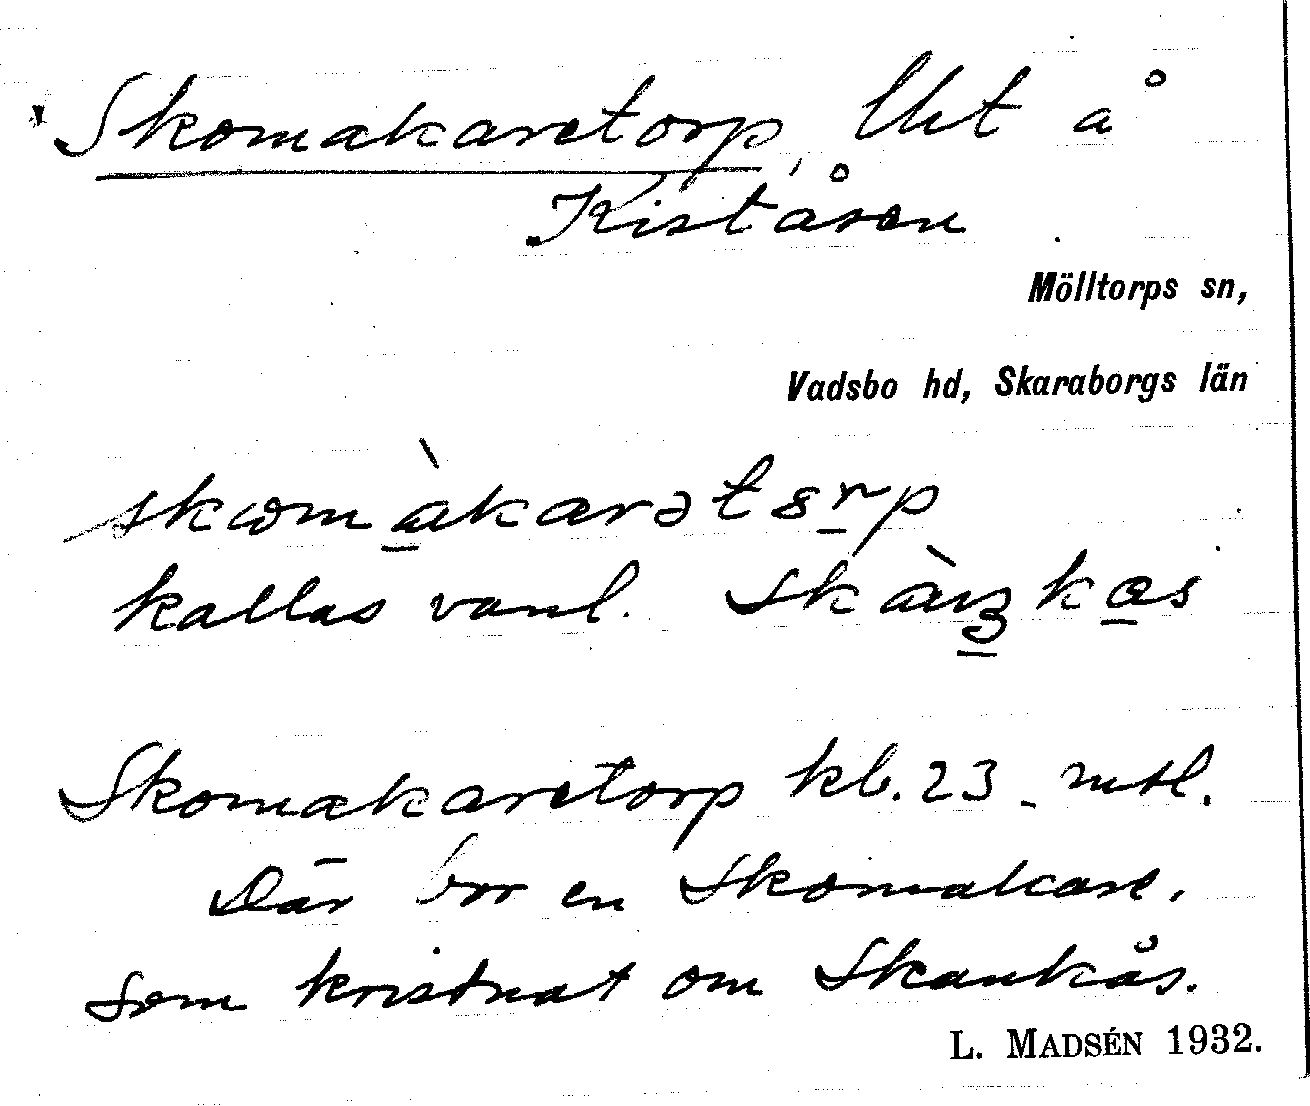 Skomakaretorp, lht å
Kiståsen
Mölltorps sn,
Vadsbo hd, Skaraborgs län
kallas vanl.
Skomakaretorp kb. 23 mtl.
Där bor en Skomakare,
som kristnat om Skankås.
L. MADSÉN 1932.